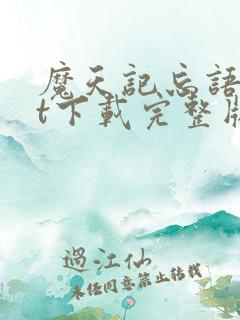 魔天記忘語
t下載完整版
過江仙
未經同意禁止轉載